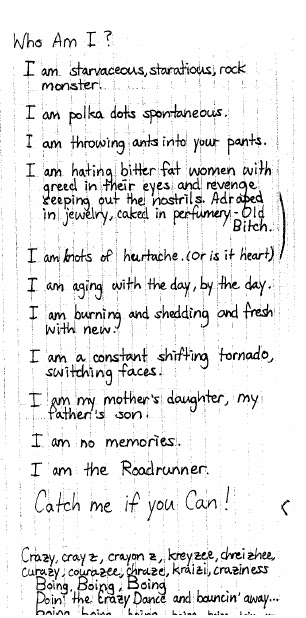 Who Am I?
I am starvaceous, staratious, rock
monster.
I am polka dots spontaneous.
I am throwing ants into your pants.
I am hating bitter fat women with
greed in their eyes and revenge
seeping out the nostrils. Adraped
in jewelry, caked in perfumery - Old
Bitch.
I am knots of heurtache. (Or is it heart)
I am aging with the day, by the day.
I am burning and shedding and fresh
with new.
I am a constant shifting tornado,
switching faces.
I am my mother's daughter, my
father's son.
I am no memories.
I am the Roadrunner.
Catch me if you Can!
Crazy, cray z, crayon z, kreyzee, chreizhee,
curazy, courazee, chraze, kraizi, craziness
Boing, Boing, Boing
Doin' the Crazy Dance and bouncin' away...